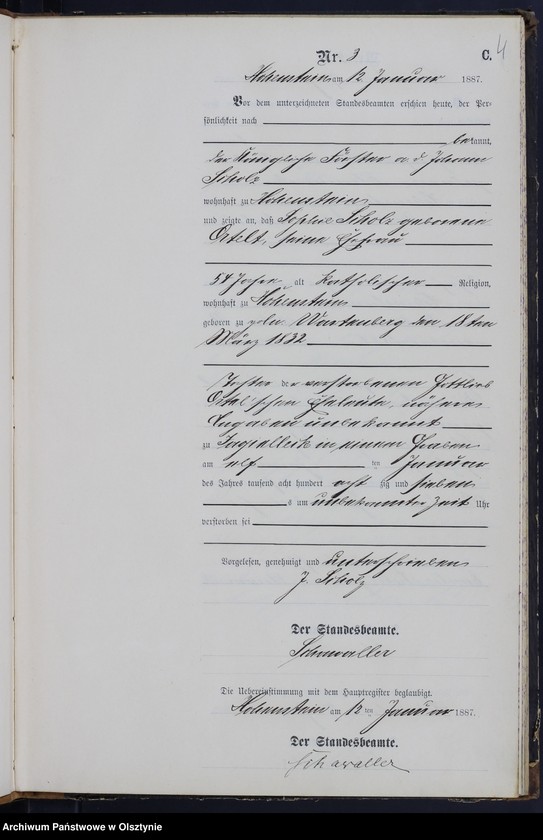 Nr. 3
C. 4
Hohenstein am 12 Januar 1887.
Vor dem unterzeichneten Standesbeamten erschien heute, der Per-
sönlichkeit nach
bekannt,
der Königliche Förster a d Johann
Scholz
wohnhaft zu Hohenstein
und zeigte an, daß Sophie Scholz geborene
Ortelt, seine Ehefrau
54 Jahre alt katholischer Religion,
wohnhaft zu Hohenstein
geboren zu poln. Wartenberg den 18ten
März 1832
Tochter der verstorbenen Gottlieb
Ortel'schen Eheleute, nähere
Angaben unbekannt
zu in einem Graben
am elf ten Januar
des Jahres tausend acht hundert acht zig und sieben
s um unbekannter Zeit Uhr
verstorben sei
Vorgelesen, genehmigt und unterschrieben
J. Scholz
Der Standesbeamte.
Schawaller
Die Uebereinstimmung mit dem Hauptregister beglaubigt.
Hohenstein am 12 ten Januar 1887.
Der Standesbeamte.
Schawaller
Archiwum Państwowe w Olsztynie